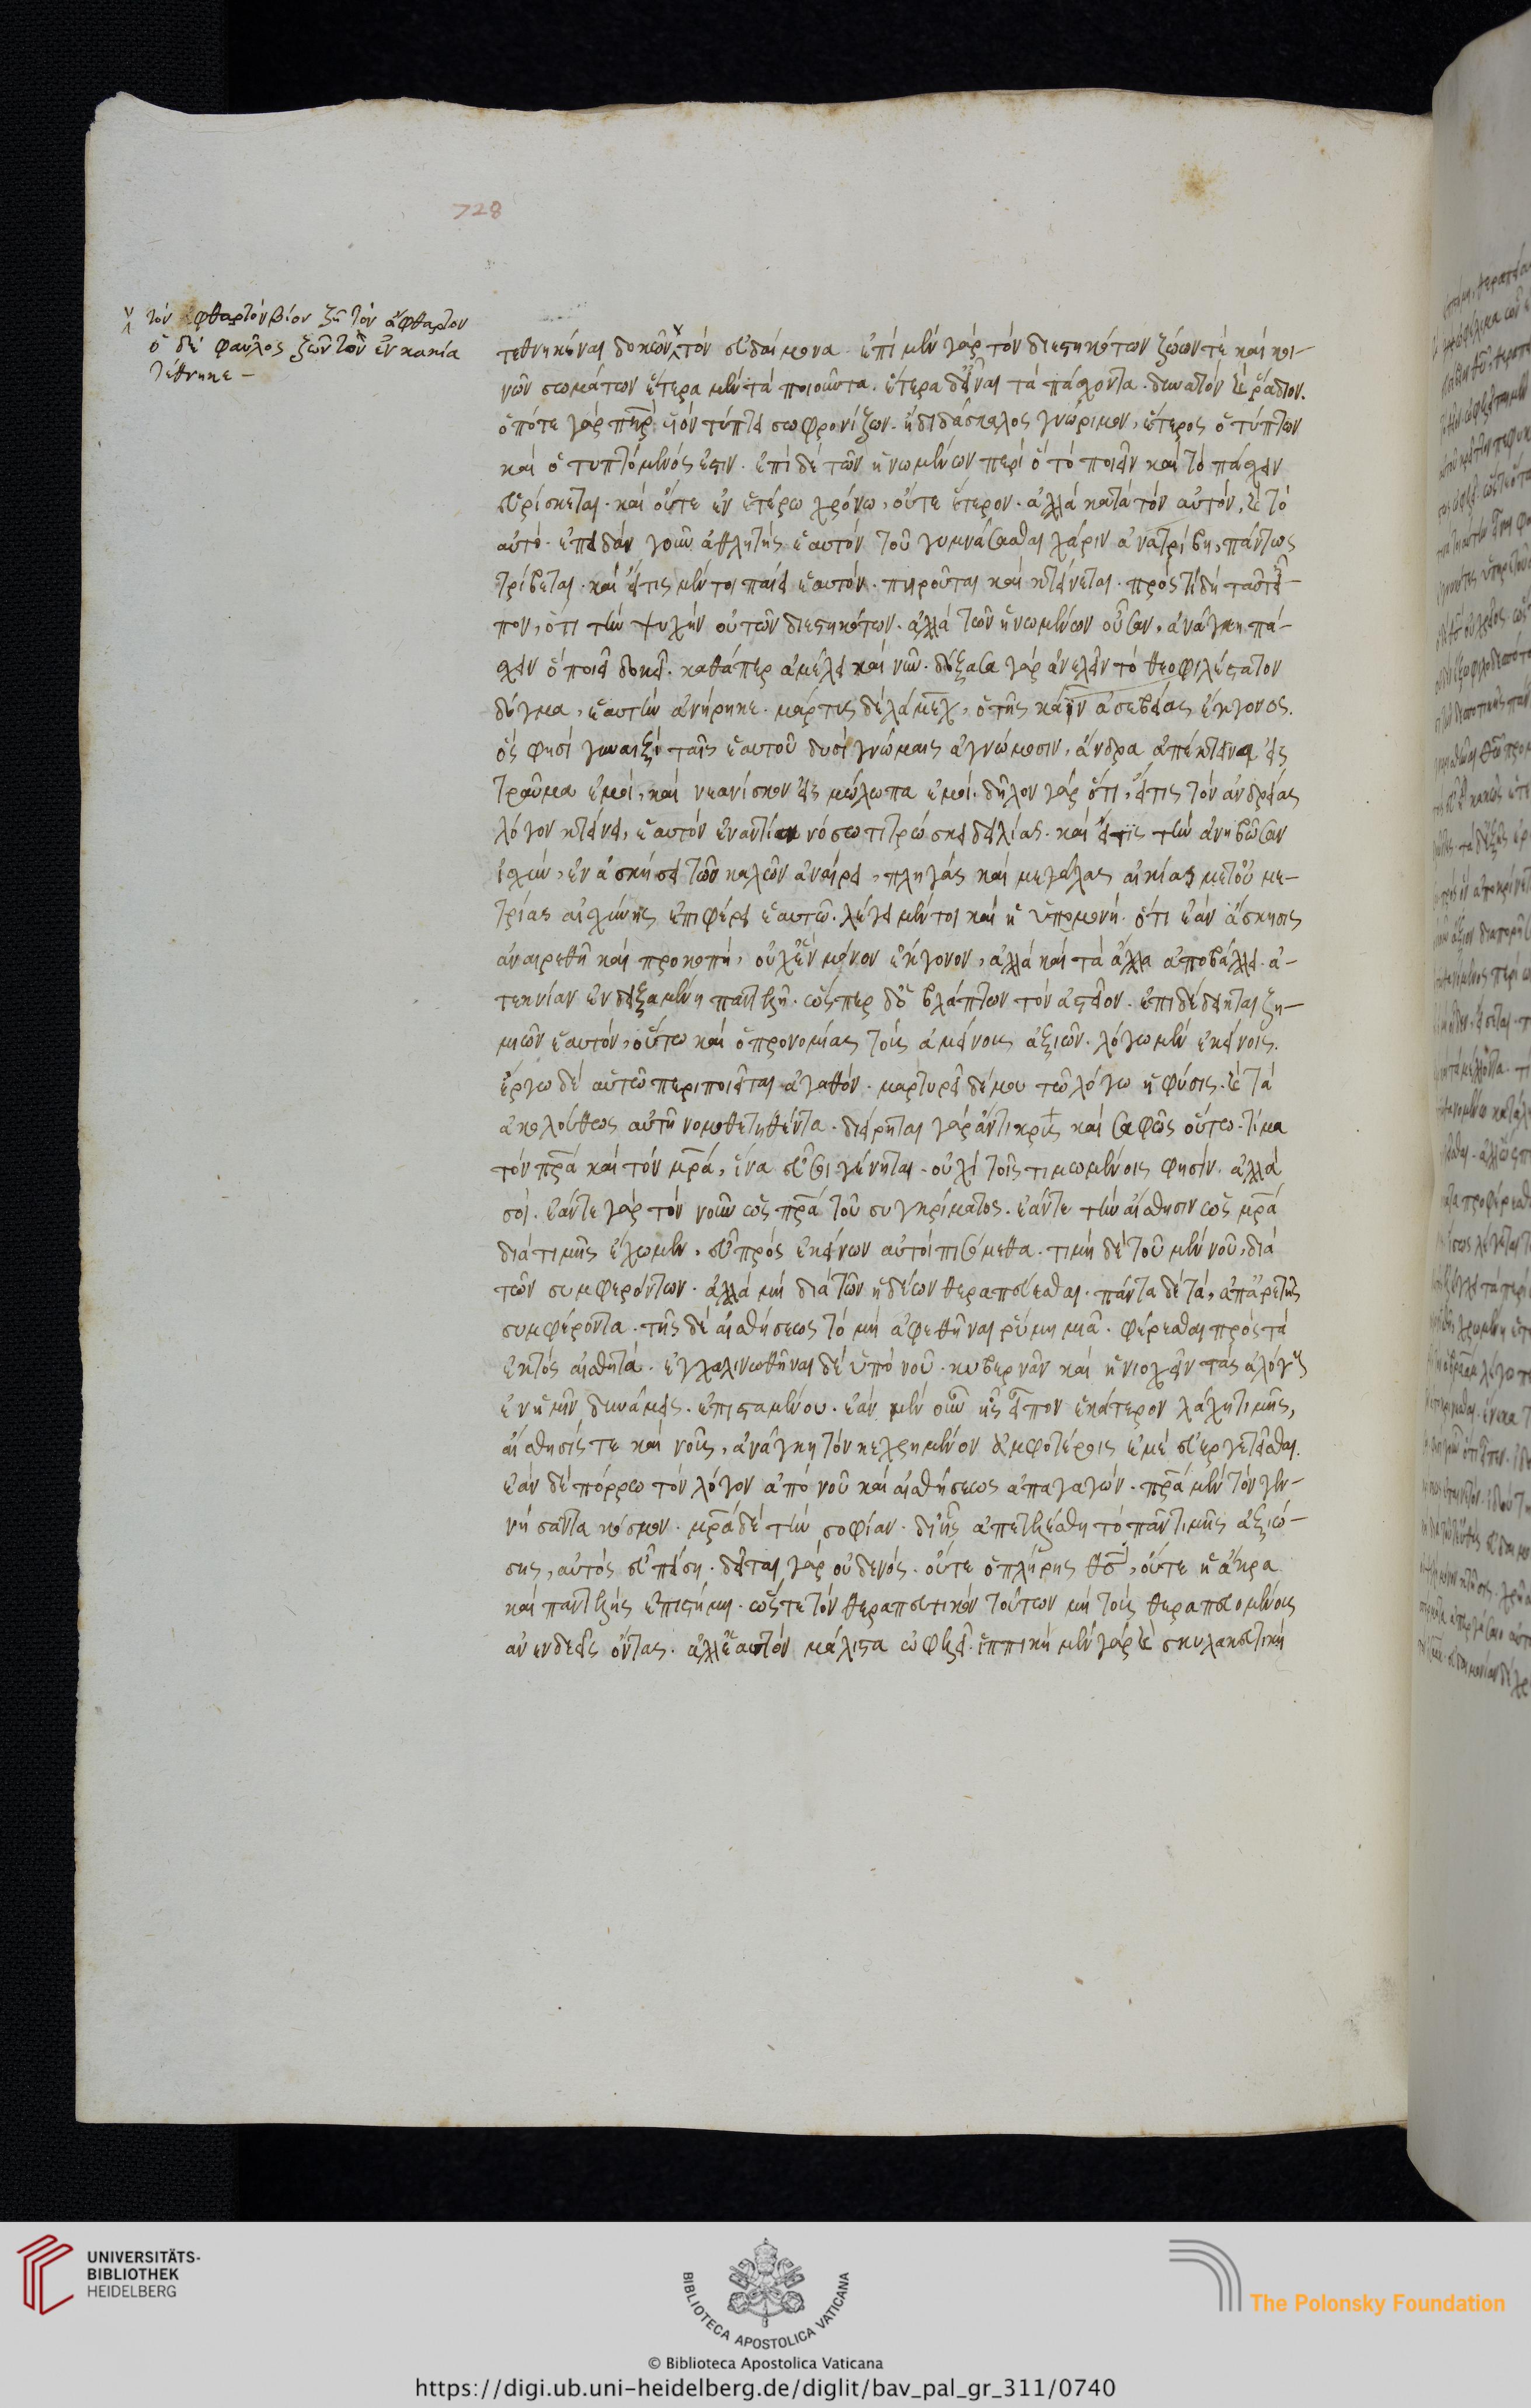 728
τὸν φθαρτὸν βίον ζῆ τὸν ἄφθαρτον
ὁ δὲ φαῦλος ζῶν τὸν ἐν κακία
τέθνηκε –
τεθνηκέναι δοκῶν τὸν εὐδαίμονα. ἐπὶ μὲν γὰρ τὸν διεστηκότων ζώων τὲ καὶ κοι-
νῶν σωμάτων ἕτερα μὲν τὰ ποιοῦντα, ἕτερα δ' εἶναι τὰ πάσχοντα. δυνατὸν καὶ ῥάδιον.
ὁπότε γὰρ πηρ υἱὸν τύπτει σωφρονίζων. ἢ διδάσκαλος γνώριμον, ἕτερος ὁ τύπτων
καὶ ὁ τυπτόμενός ἐστιν. ἐπὶ δὲ τῶν ἡνωμένων περὶ ὃ τὸ ποιεῖν καὶ τὸ πάσχειν
εὑρίσκεται. καὶ οὔτε ἐν ἑτέρω χρόνω, οὔτε ἕτερον. ἀλλὰ κατὰ τὸν αὐτὸν, καὶ τὸ
αὐτό. ἐπειδὰν γοῦν ἀθλητὴς ἑαυτὸν τοῦ γυμνάσασθαι χάριν ἀνατρίβη, πάντως
τρίβεται. καὶ εἴτις μέντοι παίει ἑαυτὸν. πηροῦται καὶ κτείνεται. πρὸς τί δὴ ταῦτ' εἶ-
πον, ὅτι τὴν ψυχὴν οὐ τῶν διεστηκότων. ἀλλὰ τῶν ἡνωμένων οὖσαν, ἀνάγκη πά-
σχειν ὃ ποιεῖ δοκεῖ. καθάπερ ἀμέλει καὶ νῦν. δόξασα γὰρ ἀνελεῖν τὸ θεοφιλέστατον
δόγμα, ἑαυτὴν ἀνήρηκε. μάρτυς δὲ λάμεχ, ὁ τῆς κάϊν ἀσεβείας ἔκγονος.
ὅς φησὶ γυναιξὶ ταῖς ἑαυτοῦ δυσὶ γνώμαις ἀγνώμοσιν, ἄνδρα ἀπέκτεινα εἰς
τραῦμα ἐμοὶ, καὶ νεανίσκον εἰς μώλωπα ἐμοί. δῆλον γὰρ ὅτι, εἴτις τὸν ἀνδρείας
λόγον κτείνει, ἑαυτὸν ἐναντία νόσω τιτρώσκει δειλίας. καὶ εἴτις τὴν ἀνηβῶσαν
ἰσχὺν, ἐν ἀσκήσει τῶν καλῶν ἀναίρει, πληγὰς καὶ μεγάλας αἰκίας μετ' οὐ με-
τρίας αἰσχύνης ἐπιφέρει ἑαυτῶ. λέγει μέντοι καὶ ἡ ὑπομονὴ. ὅτι ἐὰν ἄσκησις
ἀναιρεθῆ καὶ προκοπὴ, οὐχ ἓν μόνον ἔκγονον, ἀλλὰ καὶ τὰ ἄλλα ἀποβάλλει. ἀ-
τεκνίαν ἐνδειξαμένη παντελῆ. ὥσπερ δ' ὁ βλάπτων τὸν ἀστεῖον. ἐπιδέδεικται ζη-
μιῶν ἑαυτὸν, οὕτω καὶ ὁ προνομίας τοὺς ἀμείνους ἀξιῶν. λόγω μὲν ἐκείνοις.
ἔργω δὲ αὑτῶ περιποιεῖται ἀγαθόν. μαρτυρεῖ δέ μου τῶ λόγω ἡ φύσις. καὶ τὰ
ἀκολούθως αὐτῆ νομοθετηθέντα. διείρηται γὰρ ἄντικρυς καὶ σαφῶς οὕτω. τίμα
τὸν πρα καὶ τὸν μρα, ἵνα εὖ σοι γένηται. οὐχὶ τοῖς τιμωμένοις φησίν. ἀλλὰ
σοί. ἐάντε γὰρ τὸν νοῦν ὡς πρα τοῦ συγκρίματος. ἐάντε τὴν αἴσθησιν ὡς μρα
διὰ τιμῆς ἔχωμεν, εὖ πρὸς ἐκείνων αὐτοὶ πισόμεθα. τιμὴ δὲ τοῦ μὲν νοῦ, διὰ
τῶν συμφερόντων. ἀλλὰ μὴ διὰ τῶν ἡδέων θεραπεύεσθαι. πάντα δὲ τὰ, ἀπ' ἀρετῆς
συμφέροντα. τῆς δὲ αἰσθήσεως τὸ μὴ ἀφεθῆναι ῥύμη μιᾶ. φέρεσθαι πρὸς τὰ
ἐκτὸς αἰσθητά. ἐγχαλινωθῆναι δὲ ὑπὸ νοῦ. κυβερνᾶν καὶ ἡνιοχεῖν τὰς ἀλόγους
ἐν ἡμῖν δυνάμεις. ἐπισταμένου. ἐὰν μὲν οὖν ἧς εἶπον ἑκάτερον λάχη τιμῆς,
αἴσθησίς τε καὶ νοῦς, ἀνάγκη τὸν κεχρημένον ἀμφοτέροις ἐμὲ εὐεργετεῖσθαι.
ἐὰν δὲ πόρρω τὸν λόγον ἀπὸ νοῦ καὶ αἰσθήσεως ἀπαγαγών. πρα μὲν τὸν γεν-
νήσαντα κόσμον. μρα δὲ τὴν σοφίαν. δι' ἧς ἀπετελέσθη τὸ πᾶν τιμῆς ἀξιώ-
σης, αὐτὸς εὖ πείση. δεῖται γὰρ οὐδενὸς. οὔτε ὁ πλήρης θς, οὔτε ἡ ἄκρα
καὶ παντελὴς ἐπιστήμη. ὥστε τὸν θεραπευτικὸν τούτων μὴ τοὺς θεραπευομένους
ἀνενδεεῖς ὄντας. ἀλλ' ἑαυτὸν μάλιστα ὠφελεῖ. ἱππικὴ μὲν γὰρ καὶ σκυλακευτικὴ
UNIVERSITÄTS-
BIBLIOTHEK
HEIDELBERG
BIBLIOTECA APOSTOLICA VATICANA
The Polonsky Foundation
© Biblioteca Apostolica Vaticana
https://digi.ub.uni-heidelberg.de/diglit/bav_pal_gr_311/0740